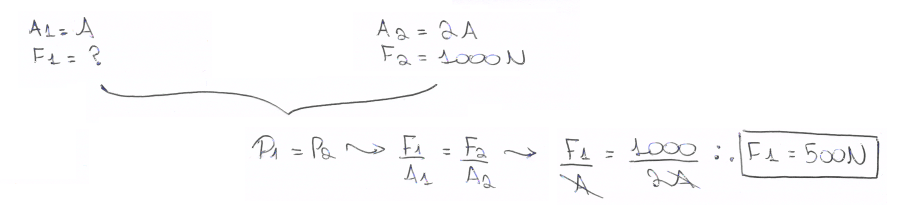 A1 = A
F1 = ?
A2 = 2A
F2 = 1000N
P1 = P2 ~> F1/A1 = F2/A2 ~> F1/A = 1000/2A ∴ F1 = 500N